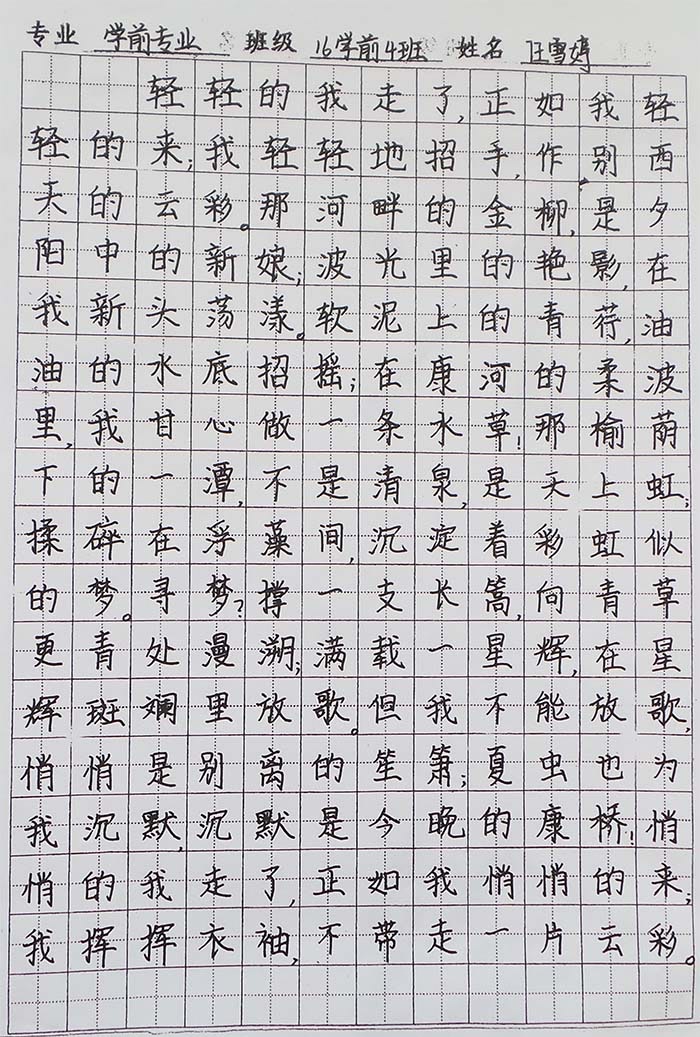 专业 学前专业 班级 16学前4班 姓名 汪雪婷
轻轻的我走了,正如我轻
轻的来;我轻轻地招手,作别西
天的云彩。那河畔的金柳,是夕
阳中的新娘;波光里的艳影,在
我新头荡漾。软泥上的青荇,油
油的水底招摇;在康河的柔波
里,我甘心做一条水草!那榆荫
下的一潭,不是清泉,是天上虹;
揉碎在浮藻间,沉淀着彩虹似
的梦。寻梦?撑一支长篙,向青草
更青处漫溯;满载一星辉,在星
辉斑斓里放歌。但我不能放歌,
悄悄是别离的笙箫;夏虫也为
我沉默,沉默是今晚的康桥!悄
悄的我走了,正如我悄悄的来;
我挥挥衣袖,不带走一片云彩。